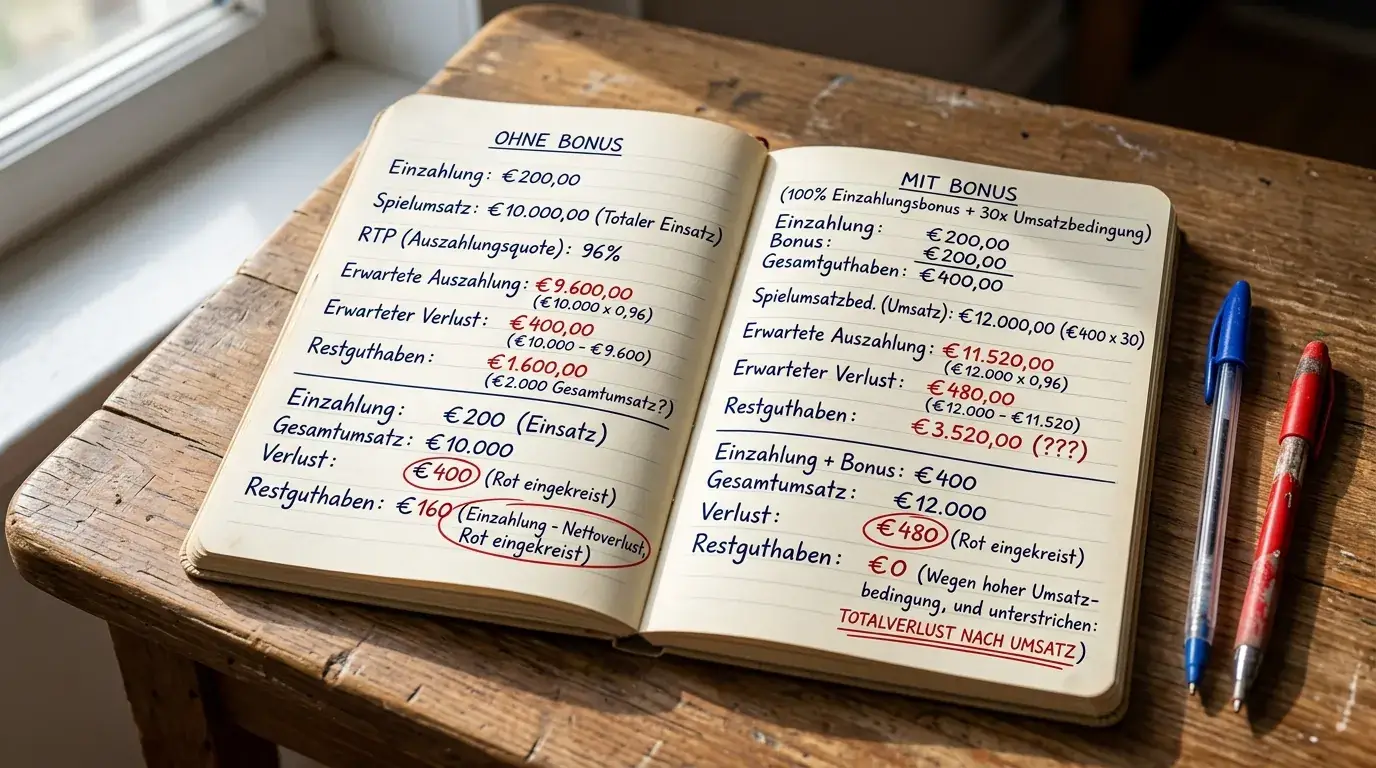 OHNE BONUS
Einzahlung: €200,00
Spielumsatz: €10.000,00 (Totaler Einsatz)
RTP (Auszahlungsquote): 96%
Erwartete Auszahlung: €9.600,00
(€10.000 x 0,96)
Erwarteter Verlust: €400,00
(€10.000 – €9.600)
Restguthaben: €1.600,00
(€2.000 Gesamtumsatz?)
Einzahlung: €200 (Einsatz)
Gesamtumsatz: €10.000
Verlust: €400 (Rot eingekreist)
Restguthaben: €160 (Einzahlung - Nettoverlust,
Rot eingekreist)
MIT BONUS
(100% Einzahlungsbonus + 30x Umsatzbedingung)
Einzahlung: €200,00
Bonus: €200,00
Gesamtguthaben: €400,00
Spielumsatzbed. (Umsatz): €12.000,00 (€400 x 30)
Erwartete Auszahlung: €11.520,00
(€12.000 x 0,96)
Erwarteter Verlust: €480,00
(€12.000 – €11.520)
Restguthaben: €3.520,00 (???)
Einzahlung + Bonus: €400
Gesamtumsatz: €12.000
Verlust: €480 (Rot eingekreist)
Restguthaben: €0 (Wegen hoher Umsatz-
bedingung, und unterstrichen:
TOTALVERLUST NACH UMSATZ)